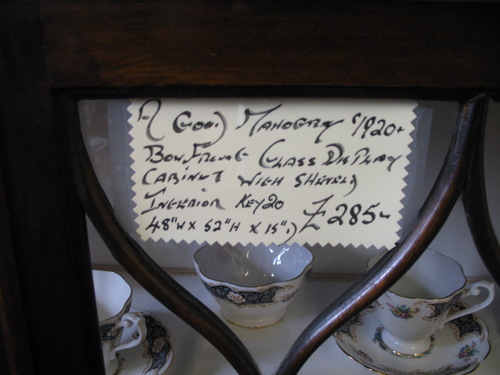 A Good Mahogany c1920+
Bow Front Glass Display
Cabinet with Shevels
Interior Key20
48"W x 52"H x 15".)
£285-